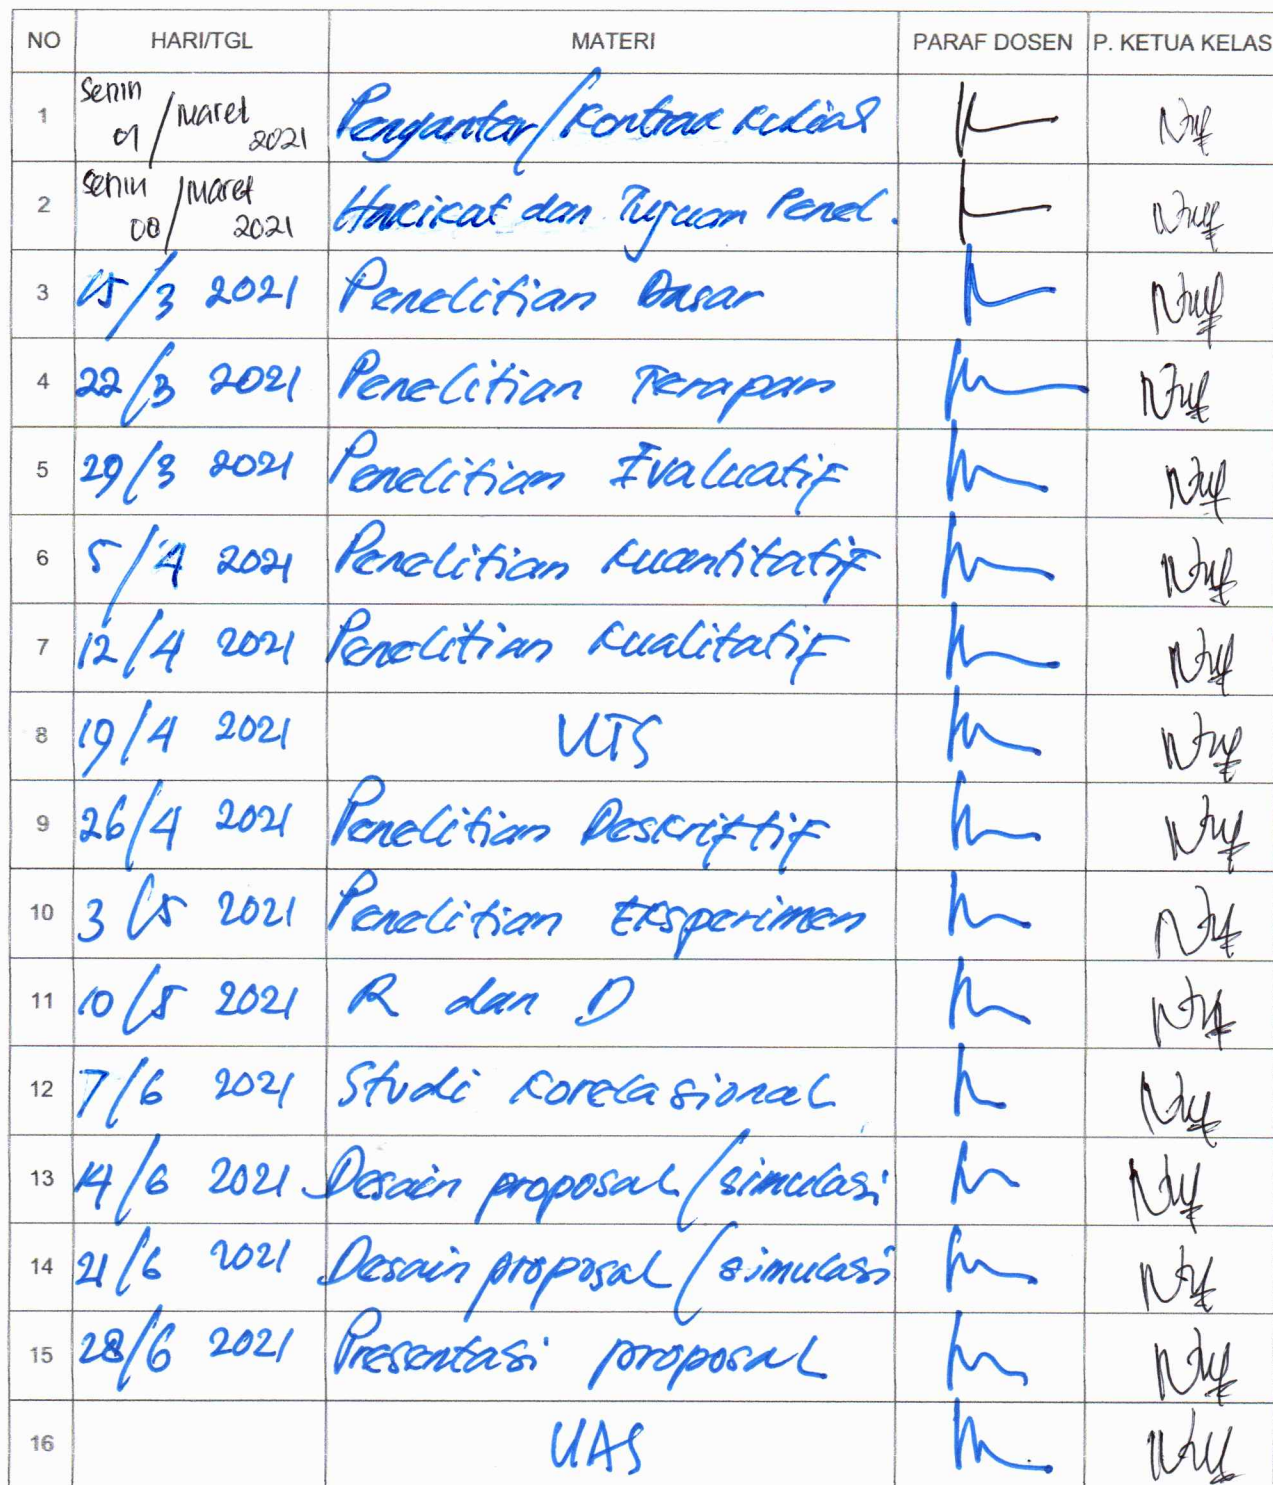 NO HARI/TGL MATERI PARAF DOSEN P. KETUA KELAS
1 Senin 01/Maret 2021 Pengantar/Kontrak Kuliah
2 Senin 08/Maret 2021 Hakikat dan Tujuan Penel.
3 15/3 2021 Penelitian Dasar
4 22/3 2021 Penelitian Terapan
5 29/3 2021 Penelitian Evaluatif
6 5/4 2021 Penelitian Kuantitatif
7 12/4 2021 Penelitian Kualitatif
8 19/4 2021 UTS
9 26/4 2021 Penelitian Deskriftif
10 3/5 2021 Penelitian Eksperimen
11 10/5 2021 R dan D
12 7/6 2021 Studi Korelasional
13 14/6 2021 Desain proposal/simulasi
14 21/6 2021 Desain proposal/simulasi
15 28/6 2021 Presentasi proposal
16 UAS